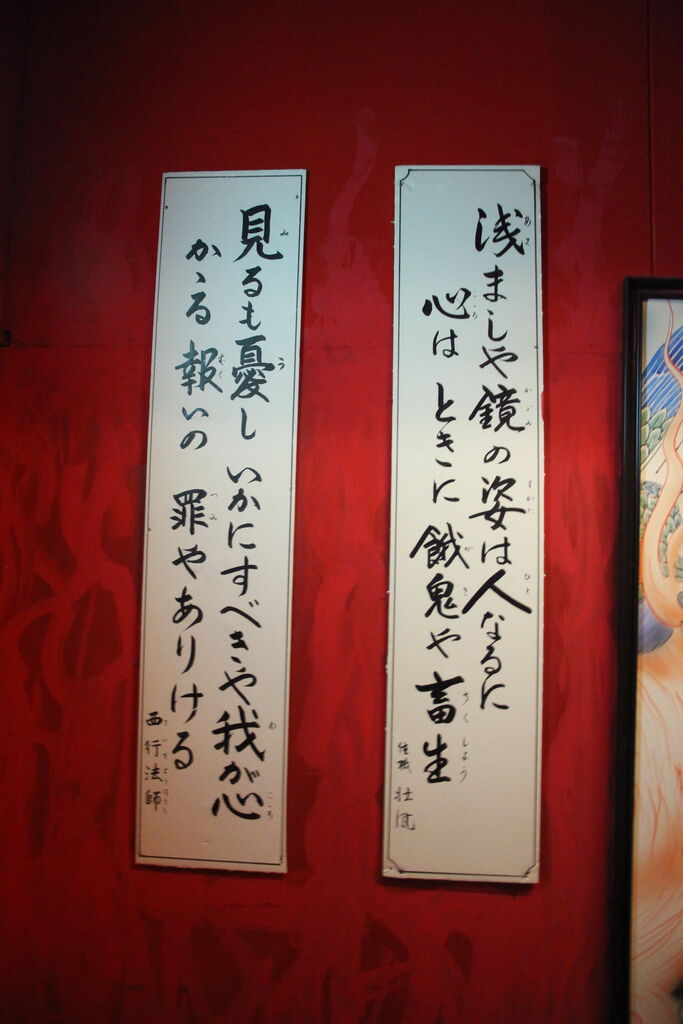 浅ましや鏡の姿は人なるに
心は ときに 餓鬼や畜生
住職 壮凨
見るも憂し いかにすべきや我が心
かゝる 報いの 罪やありける
西行法師